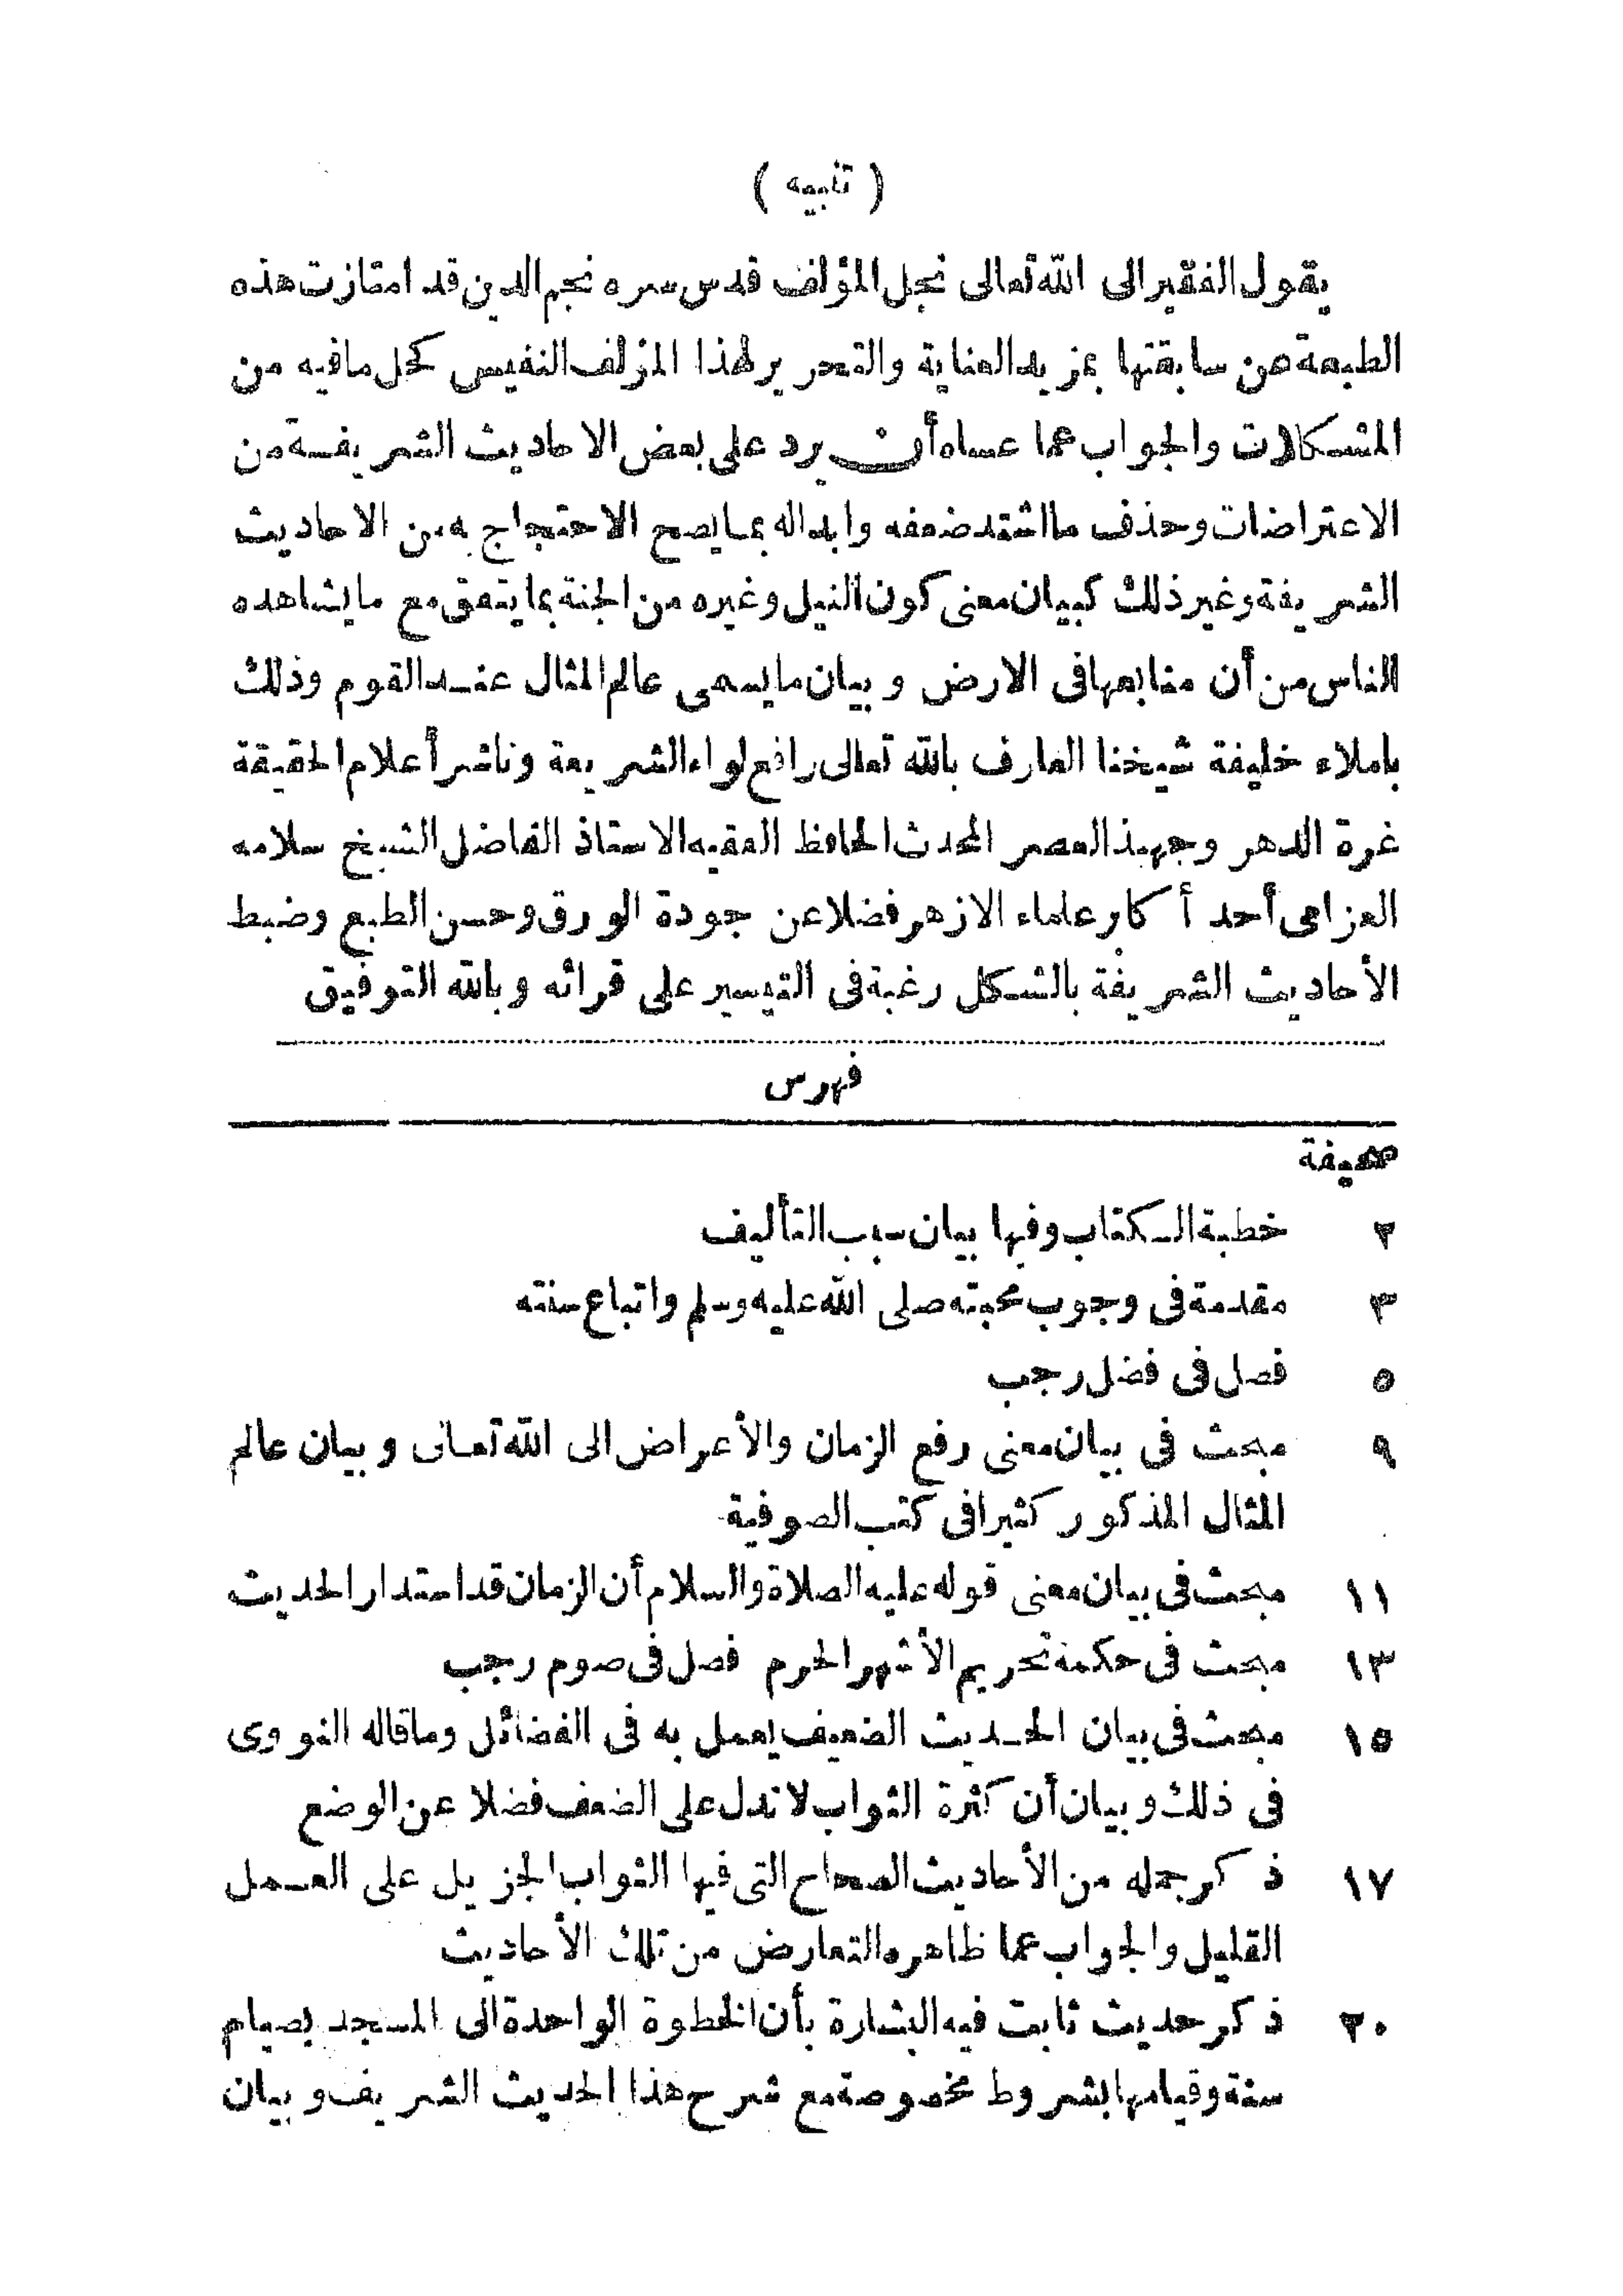 ( تنبيه )
يقول الفقير الى الله تعالى نجل المؤلف قدس سره نجم الدين قد امتازت هذه
الطبعة عن سابقتها بمزيد العناية والتحرير لهذا المؤلف النفيس كحل مافيه من
المشكلات والجواب عما عساه أن يرد على بعض الاحاديث الشريفة من
الاعتراضات وحذف ما اشتد ضعفه وابداله بما يصح الاحتجاج به من الاحاديث
الشريفة وغير ذلك كبيان معنى كون النيل وغيره من الجنة بما يتفق مع ما يشاهده
الناس من أن منابعها فى الارض وبيان ما يسمى عالم المثال عند القوم وذلك
باملاء خليفة شيخنا العارف بالله تعالى رافع لواء الشريعة وناشر أعلام الحقيقة
غرة الدهر وجهبذ العصر المحدث الحافظ الفقيه الاستاذ الفاضل الشيخ سلامه
العزامى أحد أكابر علماء الازهر فضلا عن جودة الورق وحسن الطبع وضبط
الأحاديث الشريفة بالشكل رغبة فى التيسير على قرائه وبالله التوفيق
فهرس
صحيفة
٢ خطبة الكتاب وفيها بيان سبب التأليف
٣ مقدمة فى وجوب محبته صلى الله عليه وسلم واتباع سنته
٥ فصل فى فضل رجب
٩ مبحث فى بيان معنى رفع الزمان والأعراض الى الله تعالى وبيان عالم
المثال المذكور كثيرا فى كتب الصوفية
١١ مبحث فى بيان معنى قوله عليه الصلاة والسلام أن الزمان قد استدار الحديث
١٣ مبحث فى حكمة تحريم الأشهر الحرم فصل فى صوم رجب
١٥ مبحث فى بيان الحديث الضعيف يعمل به فى الفضائل وما قاله النووى
فى ذلك وبيان أن كثرة الثواب لا تدل على الضعف فضلا عن الوضع
١٧ ذكر جمله من الأحاديث الصحاح التى فيها الثواب الجزيل على العمل
القليل والجواب عما ظاهره التعارض من تلك الأحاديث
٢٠ ذكر حديث ثابت فيه البشارة بأن الخطوة الواحدة الى المسجد بصيام
سنة وقيامها بشروط مخصوصة مع شرح هذا الحديث الشريف وبيان